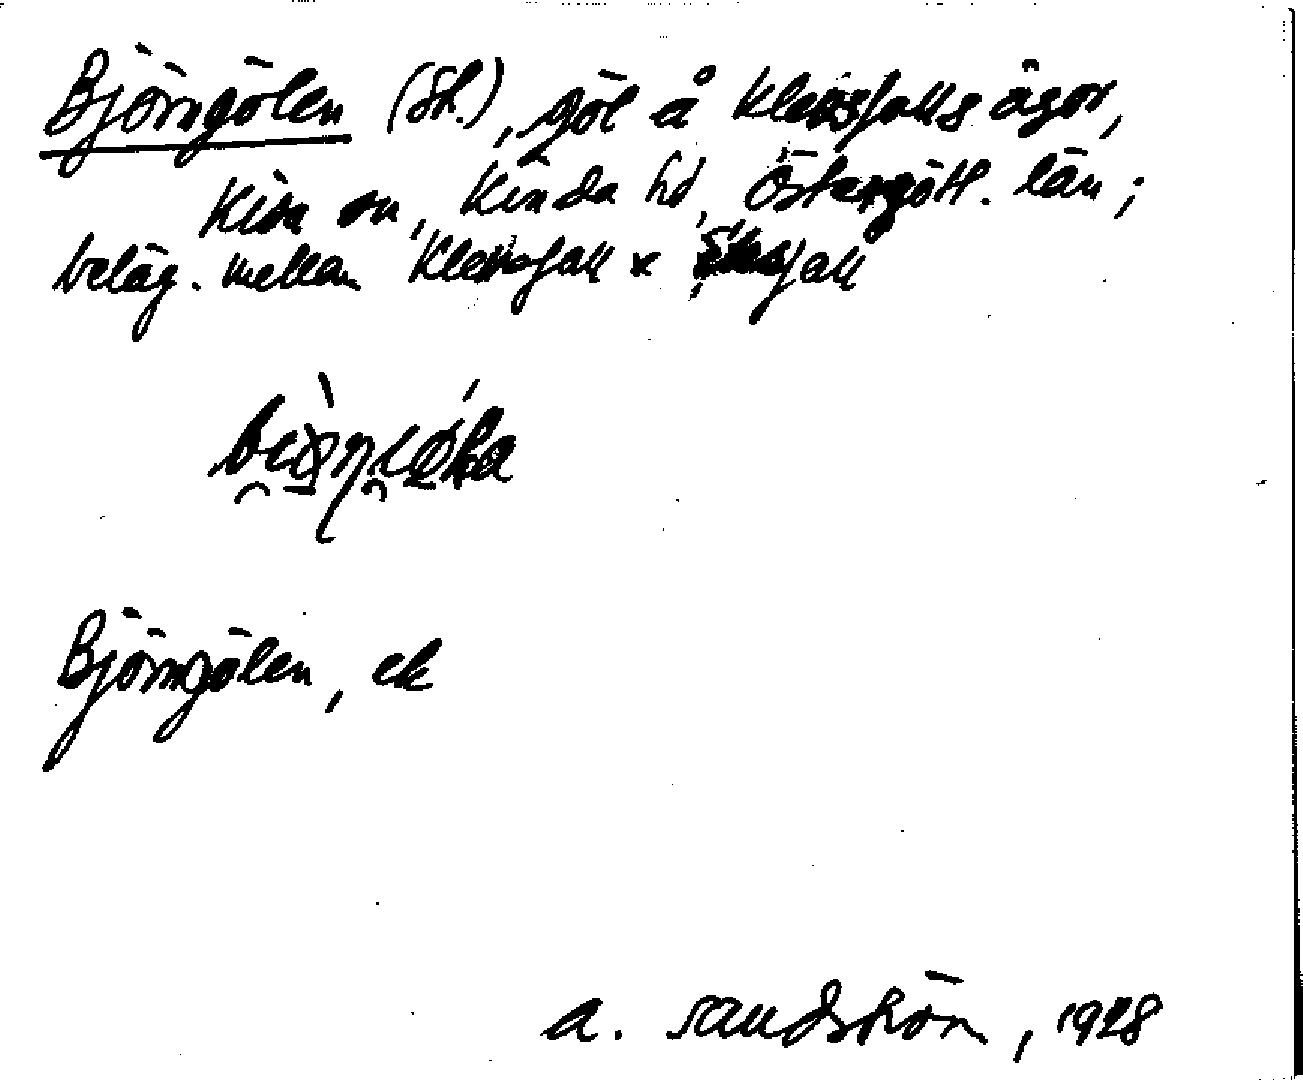 Björngölen (Sk.), göl å Klevsfalls ägor,
Kisa sn, Kinda hd, Östergötl. län;
beläg. mellan Klevsfall x
Björngölen, ek
A. Sandström, 1928